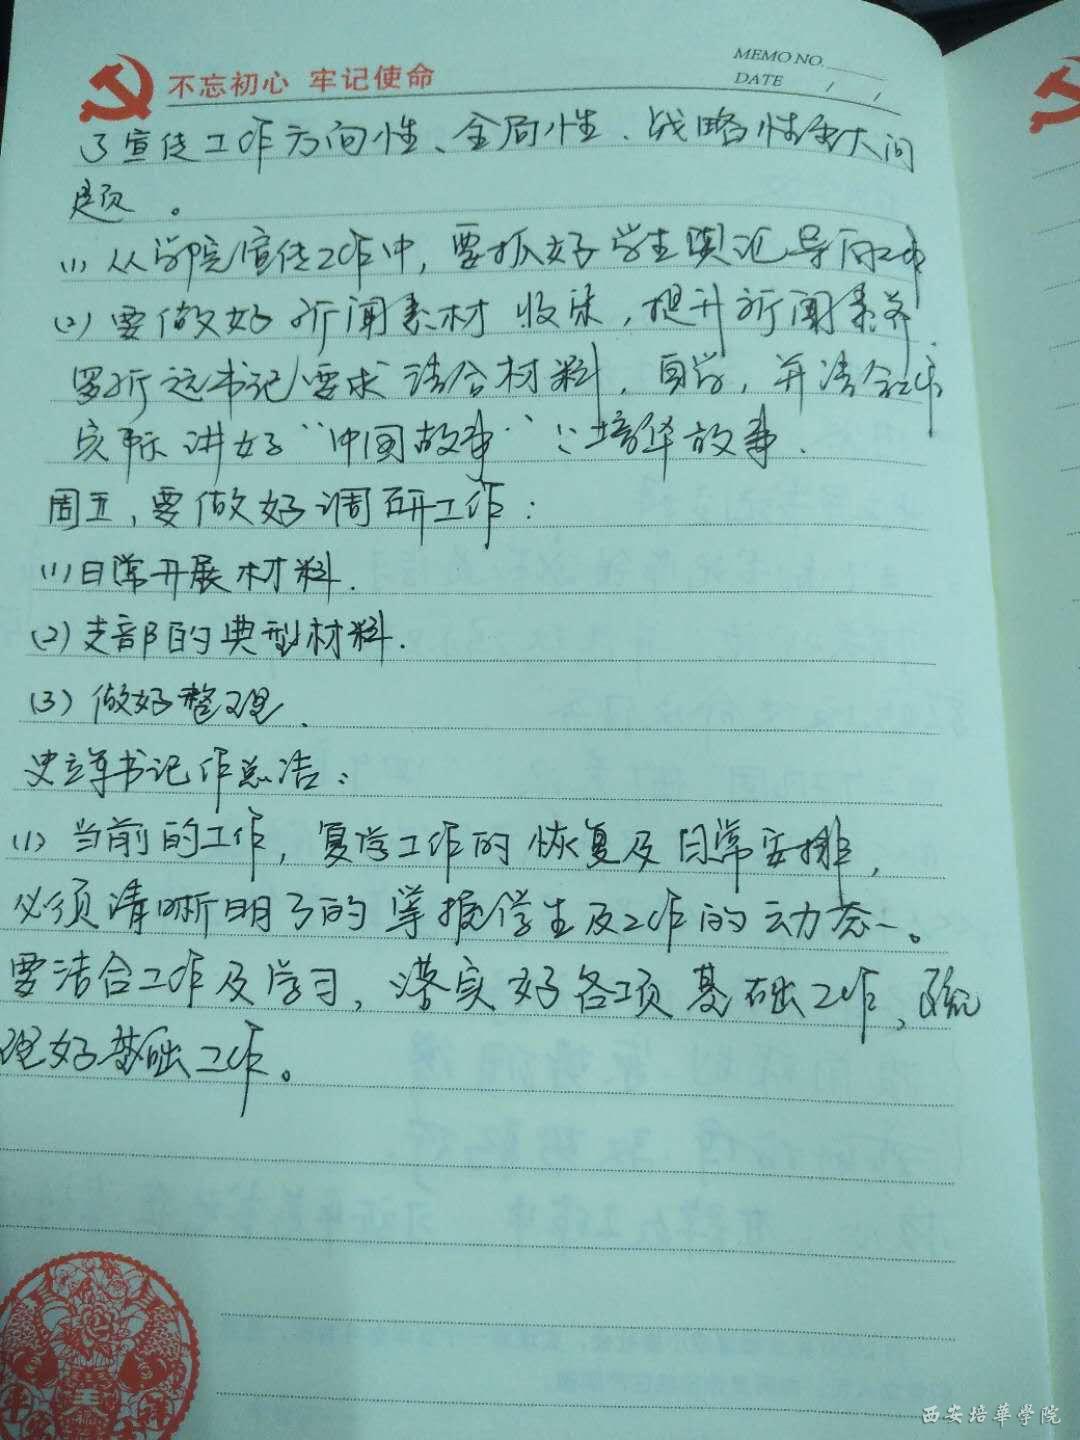 不忘初心 牢记使命
MEMO NO.
DATE / /
了宣传工作方向性、全局性、战略性重大问
题。
(1) 从学院宣传工作中，要抓好学生舆论导向工作
(2) 要做好新闻素材收集，提升新闻素养.
罗新远书记要求结合材料，自学，并结合工作
实际讲好“中国故事”“培华故事.
周五，要做好调研工作：
(1) 日常开展材料.
(2) 支部的典型材料.
(3) 做好整理.
史立军书记作总结：
(1) 当前的工作，复学工作的恢复及日常安排，
必须清晰明了的掌握学生及工作的动态。
要结合工作及学习，落实好各项基础工作，梳
理好基础工作。
西安培華学院